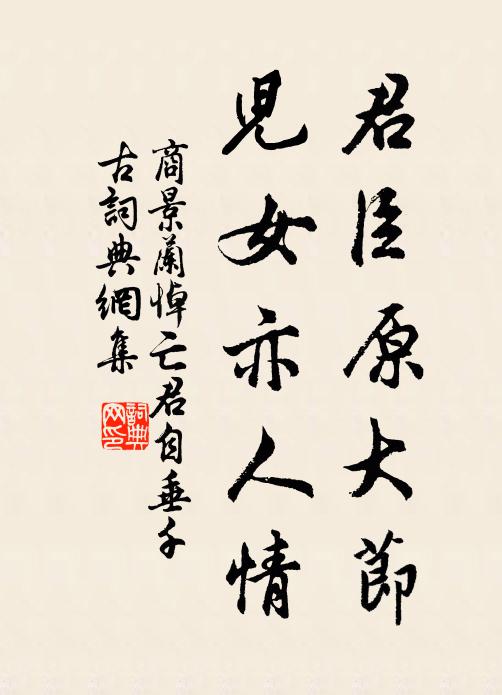 君臣原大節
兒女亦人情
商景蘭悼亡君自垂千
古詞典網集
詞典
网印